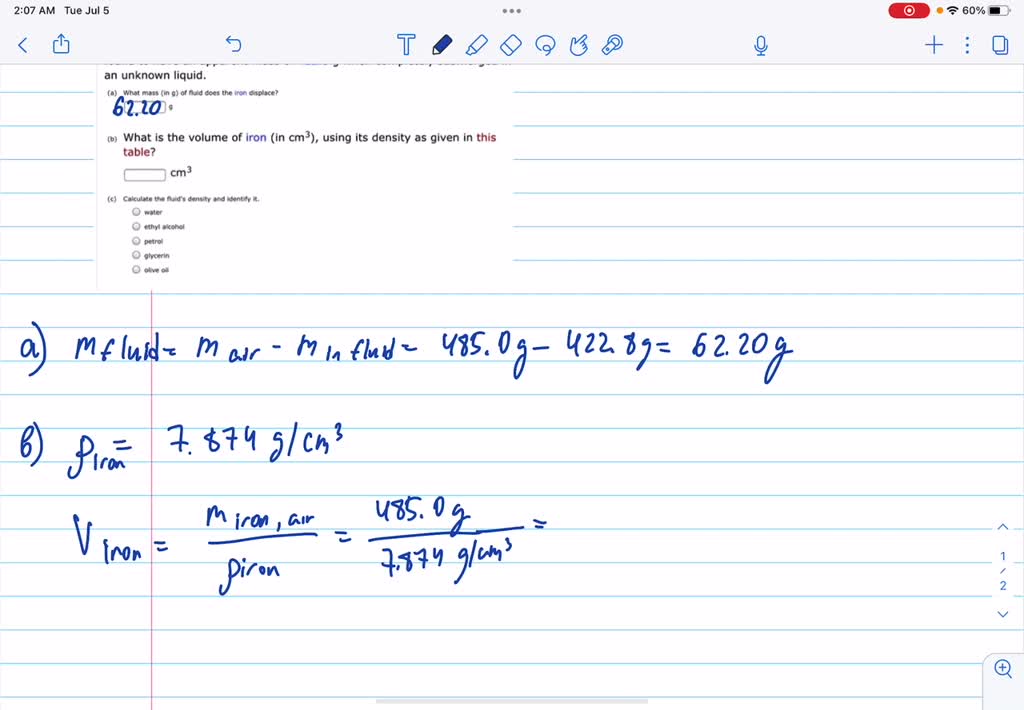 2:07 AM Tue Jul 5
60%
an unknown liquid.
(a) What mass (in g) of fluid does the iron displace?
62.20 g
(b) What is the volume of iron (in cm³), using its density as given in this
table?
cm³
(c) Calculate the fluid's density and identify it.
water
ethyl alcohol
petrol
glycerin
olive oil
a) m fluid = m air - m in fluid = 485.0g - 422.8g = 62.20g
b) ρiron = 7.874 g/cm³
V iron = m iron, air / ρiron = 485.0g / 7.874 g/cm³ =
1
/
2